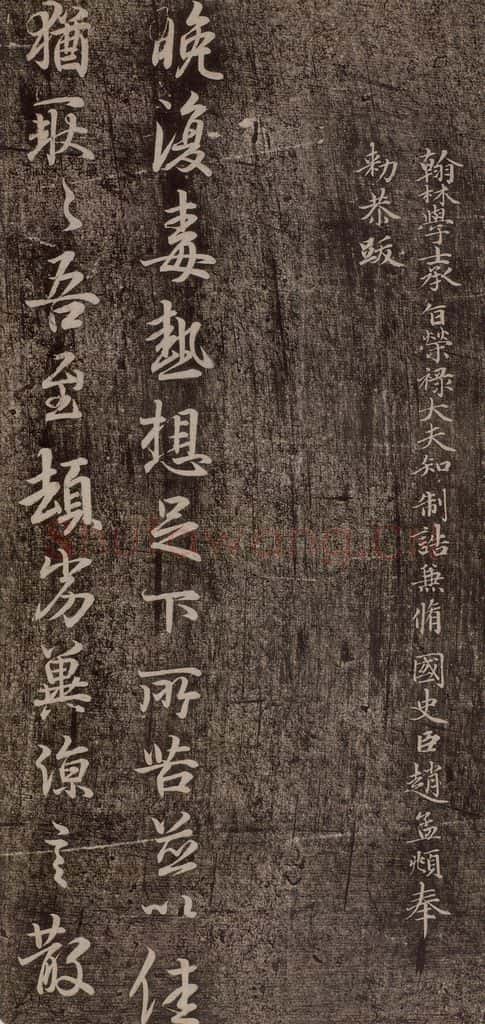 翰林學士承旨榮祿大夫知制誥兼脩國史臣趙孟頫奉
勑恭跋
晚復毒熱想足下所苦並以佳
猶耿〻吾至頓劣冀涼言散